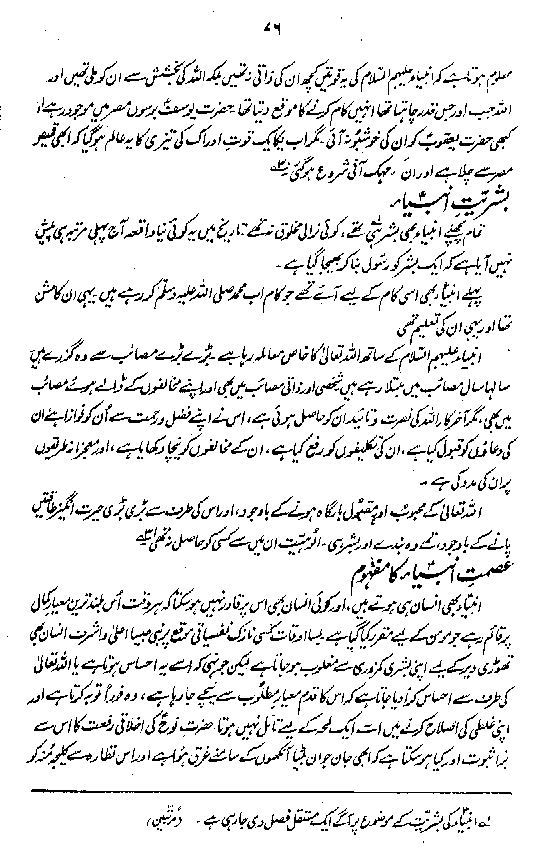 ۷۶
معلوم ہوتا ہے کہ انبیاء علیہم السلام کی یہ قوتیں کچھ ان کی ذاتی نہ تھیں بلکہ اللہ کی بخشش سے ان کو ملی تھیں اور
اللہ جب اور جس قدر چاہتا تھا انہیں کام کرنے کا موقع دیتا تھا۔ حضرت یوسفؑ برسوں مصر میں موجود رہے اور
کبھی حضرت یعقوبؑ کو ان کی خوشبو نہ آئی۔ مگر اب یکایک قوت ادراک کی تیزی کا یہ عالم ہوگیا کہ ابھی قمیص
مصر سے چلا ہے اور ان مہک آنی شروع ہوگئی۔
بشریتِ انبیاء
تمام پچھلے انبیاء بھی بشر ہی تھے، کوئی نرالی مخلوق نہ تھے تاریخ میں یہ کوئی نیا واقعہ آج پہلی مرتبہ ہی پیش
نہیں آیا ہے کہ ایک بشر کو رسول بنا کر بھیجا گیا ہے۔
پہلے انبیاءؑ بھی اسی کام کے لیے آئے تھے جو کام اب محمد صلی اللہ علیہ وسلم کر رہے ہیں یہی ان کا مشن
تھا اور یہی ان کی تعلیم تھی
انبیاء علیہم السلام کے ساتھ اللہ تعالیٰ کا خاص معاملہ رہا ہے۔ بڑے بڑے مصائب سے وہ گزرے ہیں
سالہا سال مصائب میں مبتلا رہے ہیں شخصی اور ذاتی مصائب میں بھی اور اپنے مخالفوں کے ڈالے ہوئے مصائب
میں بھی، مگر آخرکار اللہ کی نصرت و تائید ان کو حاصل ہوئی ہے، اس نے اپنے فضل و رحمت سے اُن کو نوازا ہے اُن
کی دعاؤں کو قبول کیا ہے، ان کی تکلیفوں کو رفع کیا ہے، ان کے مخالفوں کو نیچا دکھایا ہے، اور معجزانہ طریقوں
پر ان کی مدد کی ہے۔
اللہ تعالیٰ کے محبوب اور مقبول بارگاہ ہونے کے باوجود، اور اس کی طرف سے بڑی بڑی حیرت انگیز طاقتیں
پانے کے باوجود، تھے وہ بندے اور بشر ہی۔ الوہیت ان میں سے کسی کو حاصل نہ تھی
عصمتِ انبیاء کا مفہوم
انبیاءؑ بھی انسان ہی ہوتے ہیں، اور کوئی انسان بھی اس پر قادر نہیں ہوسکتا کہ ہر وقت اُس بلند ترین معیارِ کمال
پر قائم رہے جو مومن کے لیے مقرر کیا گیا ہے۔ بسا اوقات کسی نازک نفسیاتی موقع پر نبی جیسا اعلیٰ و اشرف انسان بھی
تھوڑی دیر کے لیے اپنی بشری کمزوری سے مغلوب ہو جاتا ہے لیکن جونہی کہ اسے یہ احساس ہوتا ہے یا اللہ تعالیٰ
کی طرف سے احساس کرا دیا جاتا ہے کہ اس کا قدم معیارِ مطلوب سے نیچے جا رہا ہے، وہ فوراً توبہ کرتا ہے اور
اپنی غلطی کی اصلاح کرنے میں اسے ایک لمحہ کے لیے تامل نہیں ہوتا حضرت نوحؑ کی اخلاقی رفعت کا اس سے
بڑا ثبوت اور کیا ہوسکتا ہے کہ ابھی جان جوان بیٹا آنکھوں کے سامنے غرق ہوا ہے اور اس نظارے سے کلیجہ منہ کو
لے انبیاءؑ کی بشریت کے موضوع پر آگے ایک مستقل فصل دی جا رہی ہے۔ (مرتبین)